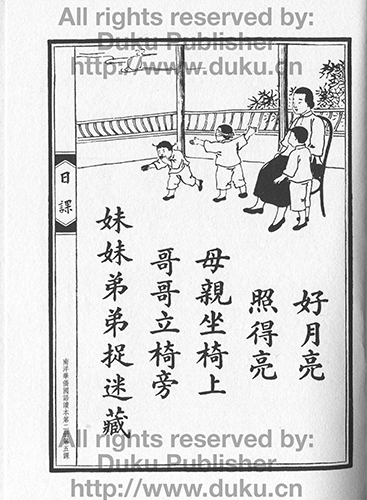 All rights reserved by:
Duku Publisher
http://www.duku.cn
好月亮
照得亮
母親坐椅上
哥哥立椅旁
妹妹弟弟捉迷藏
日課
南洋華僑國語讀本第二冊第五課
All rights reserved by:
Duku Publisher
http://www.duku.cn